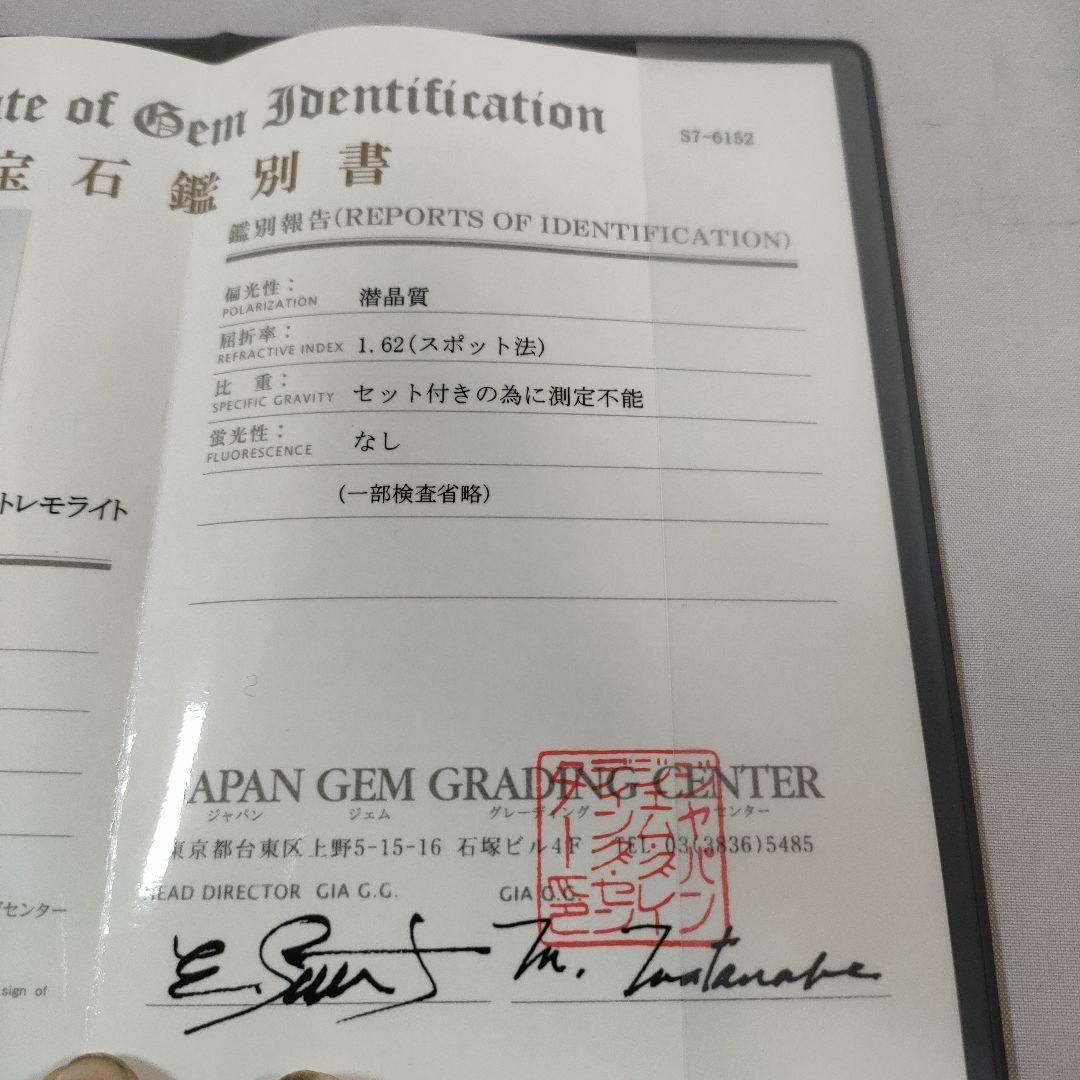 te of Gem Identification
S7-6152
宝石鑑別書
鑑別報告(REPORTS OF IDENTIFICATION)
偏光性: 潜晶質
POLARIZATION
屈折率: 1.62(スポット法)
REFRACTIVE INDEX
比 重: セット付きの為に測定不能
SPECIFIC GRAVITY
蛍光性: なし
FLUORESCENCE
(一部検査省略)
トレモライト
JAPAN GEM GRADING CENTER
ジャパン ジェム グレーディング センター
東京都台東区上野5-15-16 石塚ビル4F TEL 03(3836)5485
HEAD DIRECTOR GIA G.G. GIA G.G.
センター
M. Watanabe
sign of